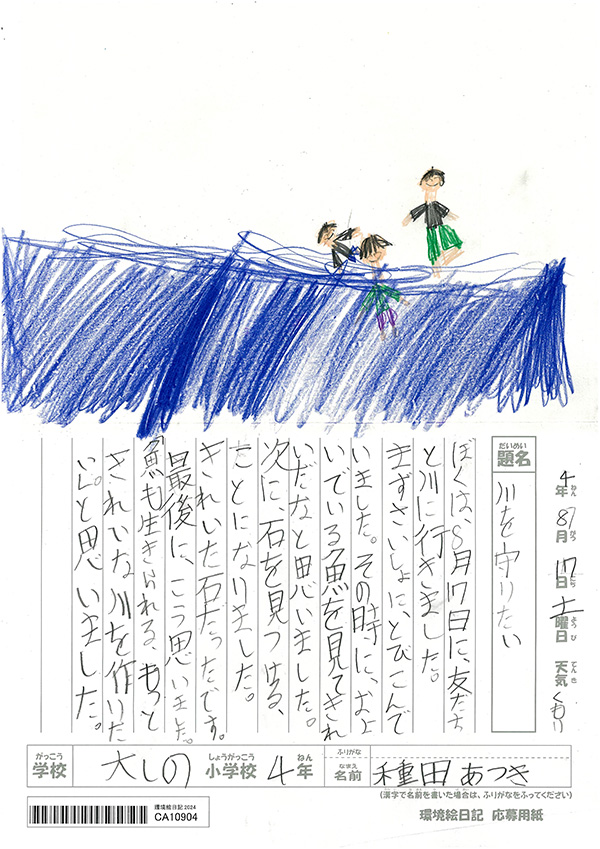 4年 8月 17日 土曜日 天気 くもり
ねん がつ にち ようび てんき
だいめい
題名
川を守りたい
ぼくは、8月17日に、友だち
と川に行きました。
まずさいしょに、とびこんで
いました。その時に、およ
いでいる魚を見てきれ
いだなと思いました。
次に、石を見つける、
ことになりました。
きれいた石だったです。
最後に、こう思いました。
「魚も生きられる、もっと
きれいな川を作りた
い。」と思いました。
がっこう しょうがっこう ねん
学校 大しの 小学校 4年
ふりがな
なまえ
名前 種田 あつき
(漢字で名前を書いた場合は、ふりがなをふってください)
環境絵日記 2024
CA10904
環境絵日記 応募用紙